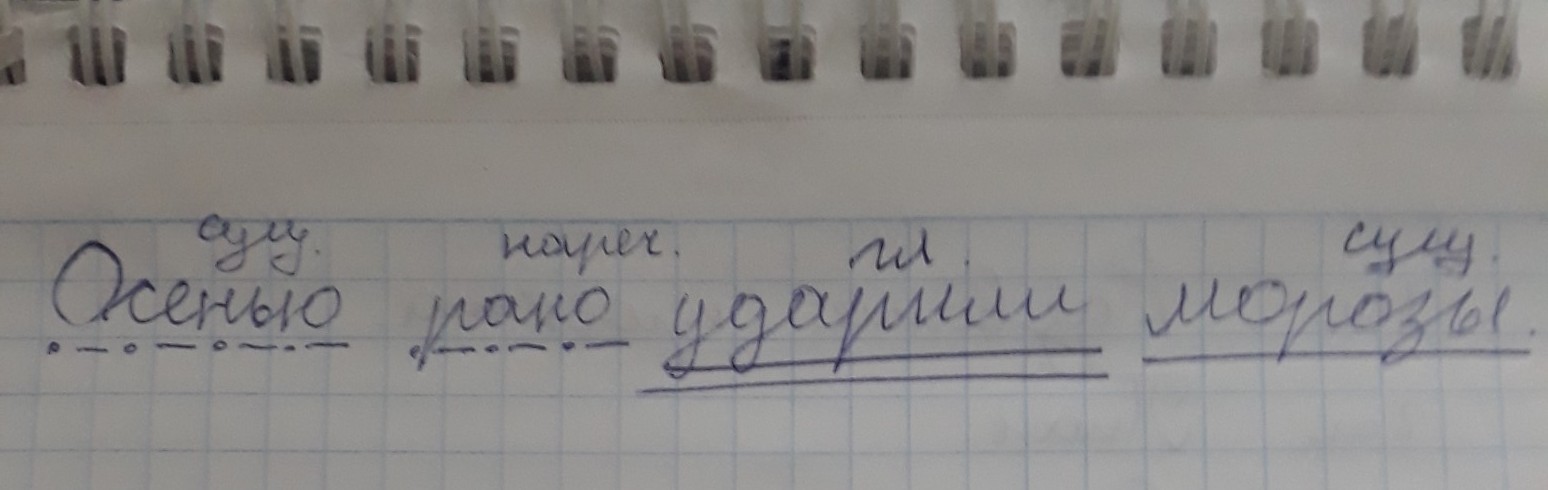 сущ. нареч. гл. сущ.
Осенью рано ударили морозы.